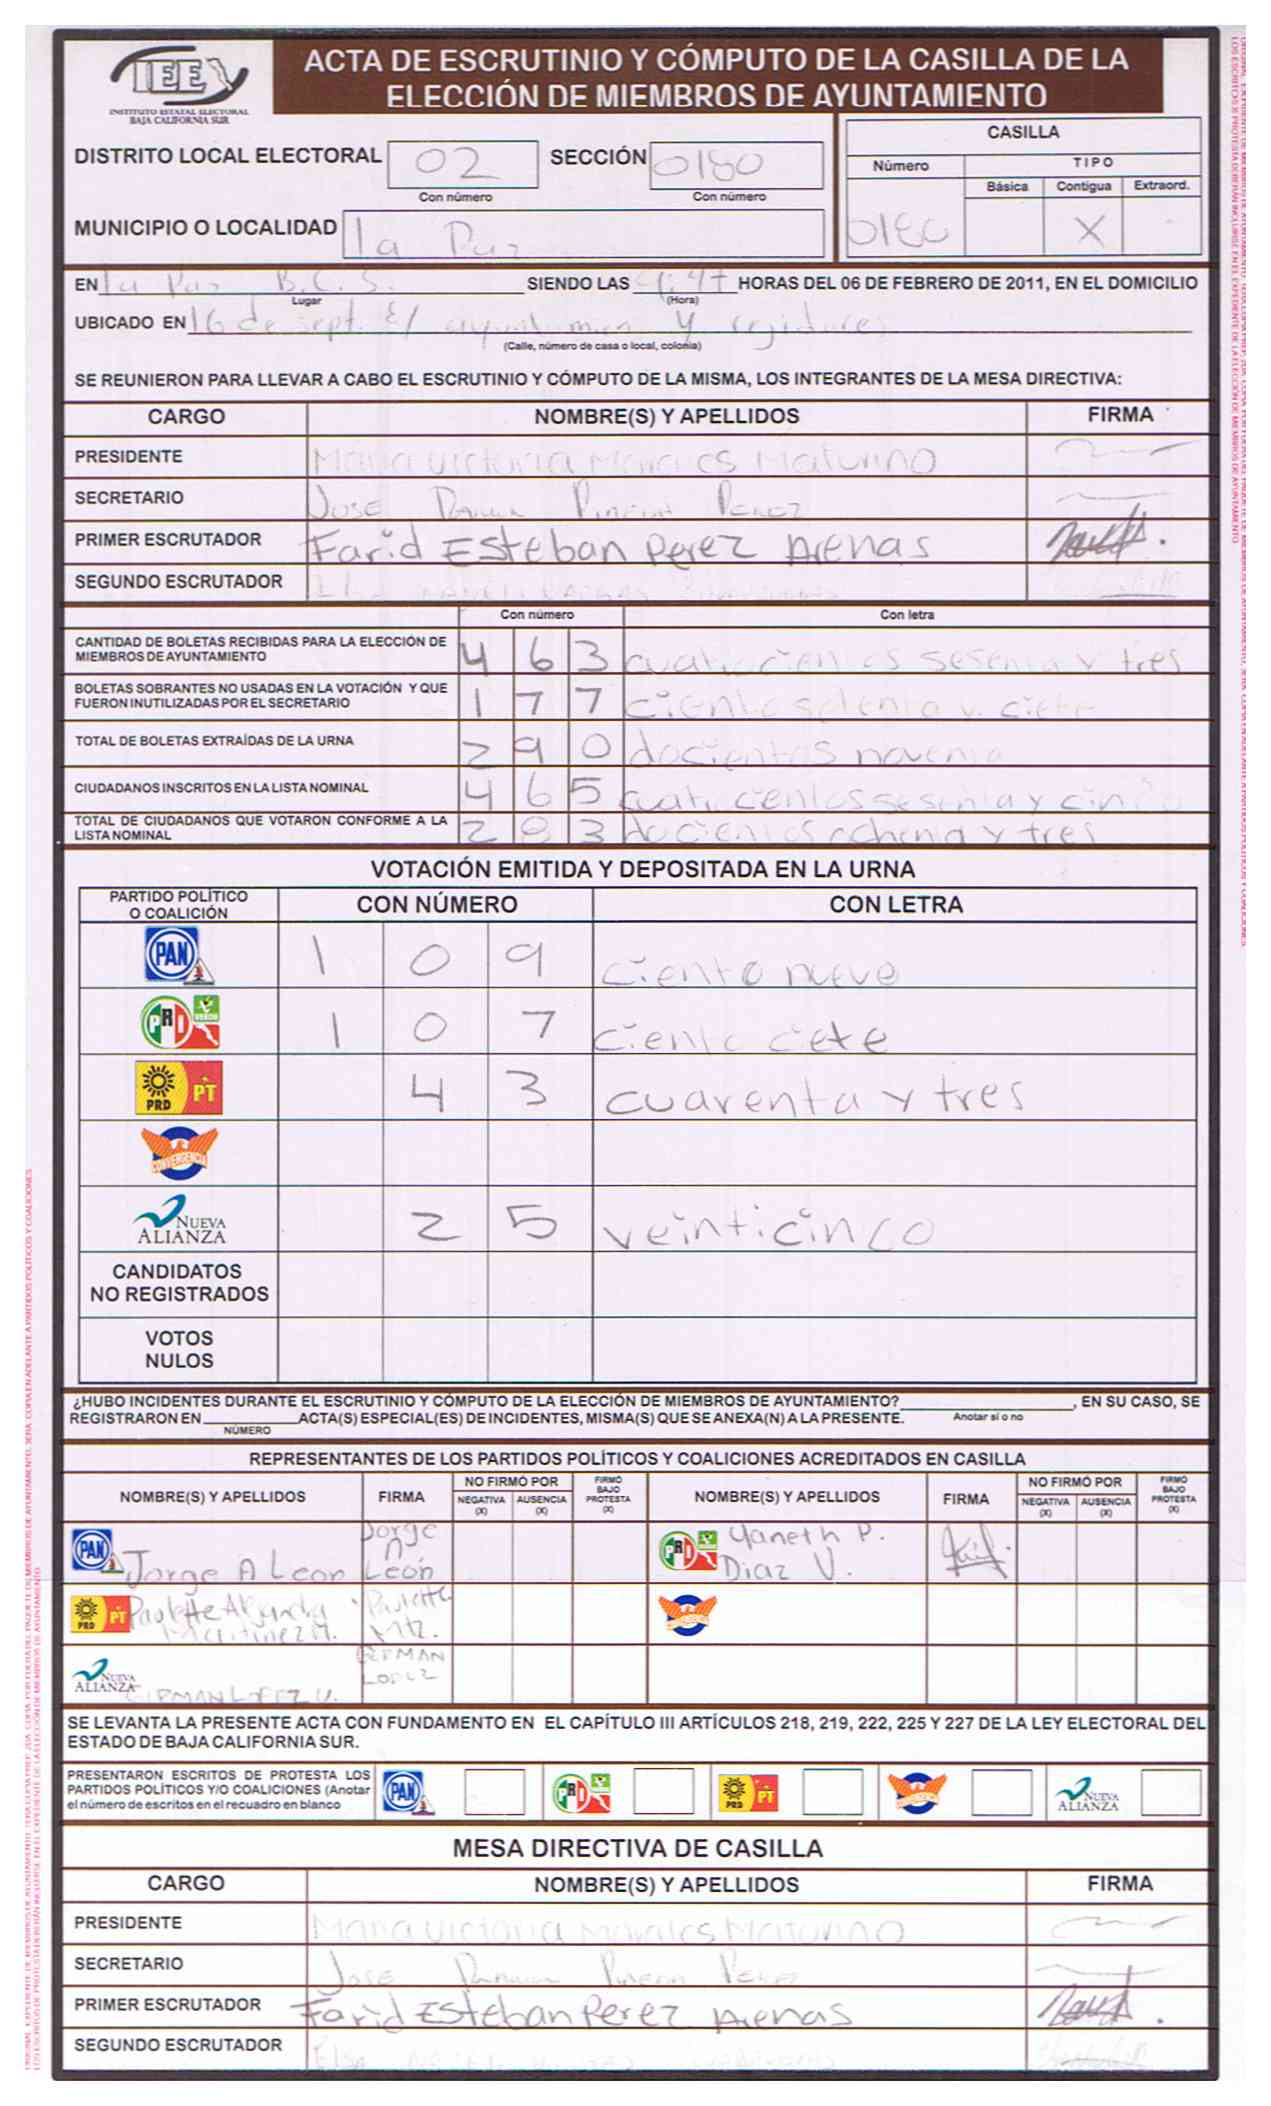 IEE
INSTITUTO ESTATAL ELECTORAL
BAJA CALIFORNIA SUR
ACTA DE ESCRUTINIO Y CÓMPUTO DE LA CASILLA DE LA
ELECCIÓN DE MIEMBROS DE AYUNTAMIENTO
DISTRITO LOCAL ELECTORAL 02 SECCIÓN 0180
Con número Con número
MUNICIPIO O LOCALIDAD La Paz
CASILLA
Número TIPO
Básica Contigua Extraord.
0180 X
EN La Paz B.C.S. SIENDO LAS HORAS DEL 06 DE FEBRERO DE 2011, EN EL DOMICILIO
Lugar (Hora)
UBICADO EN 16 de sept. E/ y regidores
(Calle, número de casa o local, colonia)
SE REUNIERON PARA LLEVAR A CABO EL ESCRUTINIO Y CÓMPUTO DE LA MISMA, LOS INTEGRANTES DE LA MESA DIRECTIVA:
CARGO NOMBRE(S) Y APELLIDOS FIRMA
PRESIDENTE Maria Victoria Morales Maturino
SECRETARIO Jose Perez
PRIMER ESCRUTADOR Farid Esteban Perez Arenas
SEGUNDO ESCRUTADOR
Con número Con letra
CANTIDAD DE BOLETAS RECIBIDAS PARA LA ELECCIÓN DE
MIEMBROS DE AYUNTAMIENTO 4 6 3 cuatrocientos sesenta y tres
BOLETAS SOBRANTES NO USADAS EN LA VOTACIÓN Y QUE
FUERON INUTILIZADAS POR EL SECRETARIO 1 7 7 ciento setenta y ciete
TOTAL DE BOLETAS EXTRAÍDAS DE LA URNA 2 9 0 docientos noventa
CIUDADANOS INSCRITOS EN LA LISTA NOMINAL 4 6 5 cuatrocientos sesenta y cinco
TOTAL DE CIUDADANOS QUE VOTARON CONFORME A LA
LISTA NOMINAL 2 8 3 docientos ochenta y tres
VOTACIÓN EMITIDA Y DEPOSITADA EN LA URNA
PARTIDO POLÍTICO
O COALICIÓN CON NÚMERO CON LETRA
PAN 1 0 9 ciento nueve
PRI VERDE 1 0 7 ciento ciete
PRD PT 4 3 cuarenta y tres
CONVERGENCIA
NUEVA ALIANZA 2 5 veinticinco
CANDIDATOS
NO REGISTRADOS
VOTOS
NULOS
¿HUBO INCIDENTES DURANTE EL ESCRUTINIO Y CÓMPUTO DE LA ELECCIÓN DE MIEMBROS DE AYUNTAMIENTO? , EN SU CASO, SE
REGISTRARON EN ACTA(S) ESPECIAL(ES) DE INCIDENTES, MISMA(S) QUE SE ANEXA(N) A LA PRESENTE. Anotar sí o no
NÚMERO
REPRESENTANTES DE LOS PARTIDOS POLÍTICOS Y COALICIONES ACREDITADOS EN CASILLA
NOMBRE(S) Y APELLIDOS FIRMA NO FIRMÓ POR NEGATIVA (X) AUSENCIA (X) FIRMÓ BAJO PROTESTA (X) NOMBRE(S) Y APELLIDOS FIRMA NO FIRMÓ POR NEGATIVA (X) AUSENCIA (X) FIRMÓ BAJO PROTESTA (X)
PAN Jorge A Leon Jorge A León PRI Yaneth P. Diaz V.
PRD PT Paulette Martinez M. Paulette Mtz. CONVERGENCIA
NUEVA ALIANZA GERMAN LOPEZ V. GERMAN LOPEZ
SE LEVANTA LA PRESENTE ACTA CON FUNDAMENTO EN EL CAPÍTULO III ARTÍCULOS 218, 219, 222, 225 Y 227 DE LA LEY ELECTORAL DEL
ESTADO DE BAJA CALIFORNIA SUR.
PRESENTARON ESCRITOS DE PROTESTA LOS
PARTIDOS POLÍTICOS Y/O COALICIONES (Anotar
el número de escritos en el recuadro en blanco
PAN PRI PRD PT CONVERGENCIA NUEVA ALIANZA
MESA DIRECTIVA DE CASILLA
CARGO NOMBRE(S) Y APELLIDOS FIRMA
PRESIDENTE Maria Victoria Morales Maturino
SECRETARIO Jose Perez
PRIMER ESCRUTADOR Farid Esteban Perez Arenas
SEGUNDO ESCRUTADOR